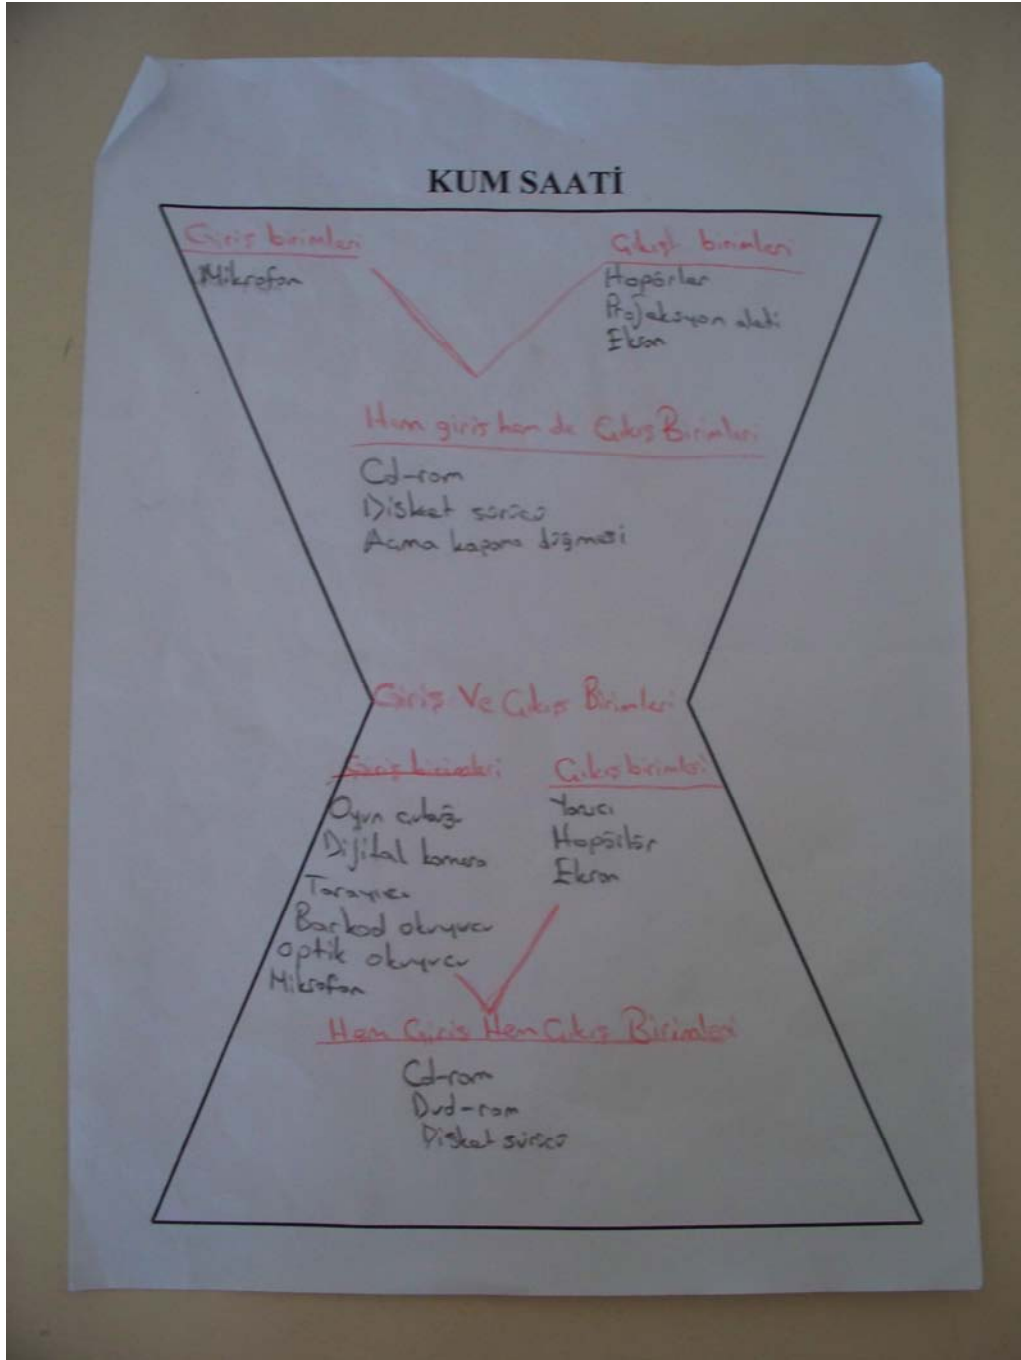 KUM SAATİ
Giriş birimleri
Mikrofon
Çıkışt birimleri
Hopörler
Projeksyon aleti
Ekran
Hem giriş hem de Çıkış Birimleri
Cd-rom
Disket sürücü
Açma kapama düğmesi
Giriş Ve Çıkış Birimleri
Giriş birimleri
Oyun çubuğu
Dijital kamera
Tarayıcı
Barkod okuyucu
optik okuyucu
Mikrofon
Çıkış birimleri
Yazıcı
Hopörlör
Ekran
Hem Giriş Hem Çıkış Birimleri
Cd-rom
Dvd-rom
Disket sürücü